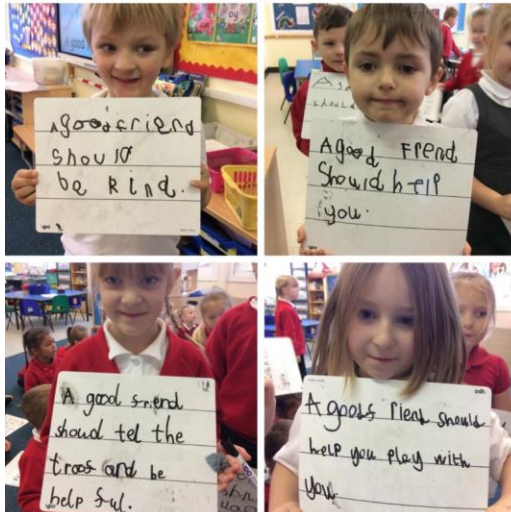 A good friend
should
be kind.
A g
should
A good Frend
Should help
you.
A good friend
shoud tel the
troof and be
help ful.
A goods riend should
help you play with
you.